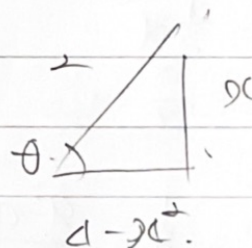 2
x
θ
4-x².